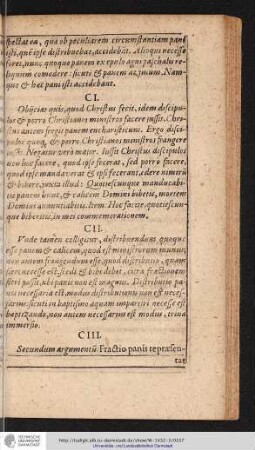 spectat ea, quā ob peculiarem circumstantiam pani
isti, quē ipse distribuebat, accidebāt. Alioqui necesse
foret, nunc quoque panem ex epulo agni paschalis re-
liquum comedere: sicuti & panem azymum. Nam-
que & hæc pani isti accidebant.
CI.
Obijcias quis, quod Christus fecit, idem discipu-
los & porrò Christianos ministros facere iussit. Chri-
stus autem fregit panem eucharisticum. Ergo disci-
pulos quoq, & porrò Christianos ministros frangere
iussit. Negatur verò maior. Iussit Christus discipulos
non hoc facere, quod ipse fecerat, sed porrò facere,
quod ipse mandaverat & ipsi fecerant, edere nimirū
& bibere, juxta illud: Quotiescunque manducabi-
tis panem hunc, & calicem Domini bibetis, mortem
Domini annuntiabitis. Item. Hoc facite, quotiescun-
que biberitis, in mei commemorationem.
CII.
Vnde tamen colligitur, distribuendum quoque
esse panem & calicem, quod est ministrorum munus,
non autem frangendum esse, quod distributio, quam
sacr. necesse est, fiedi & bibi debet, citra fractionem
fieri possit, ubi panis non est magnus. Distributio pa-
nis necessaria est. modus distributionis non est neces-
sarius. sicuti in baptismo aquam impartiri necesse est
baptizando, non autem necessarius est modus, trina
immersio.
CIII.
Secundum argumentū Fractio panis repræsen-
tat
http://tudigit.ulb.tu-darmstadt.de/show/W-3352-3/0037
Universitäts- und Landesbibliothek Darmstadt